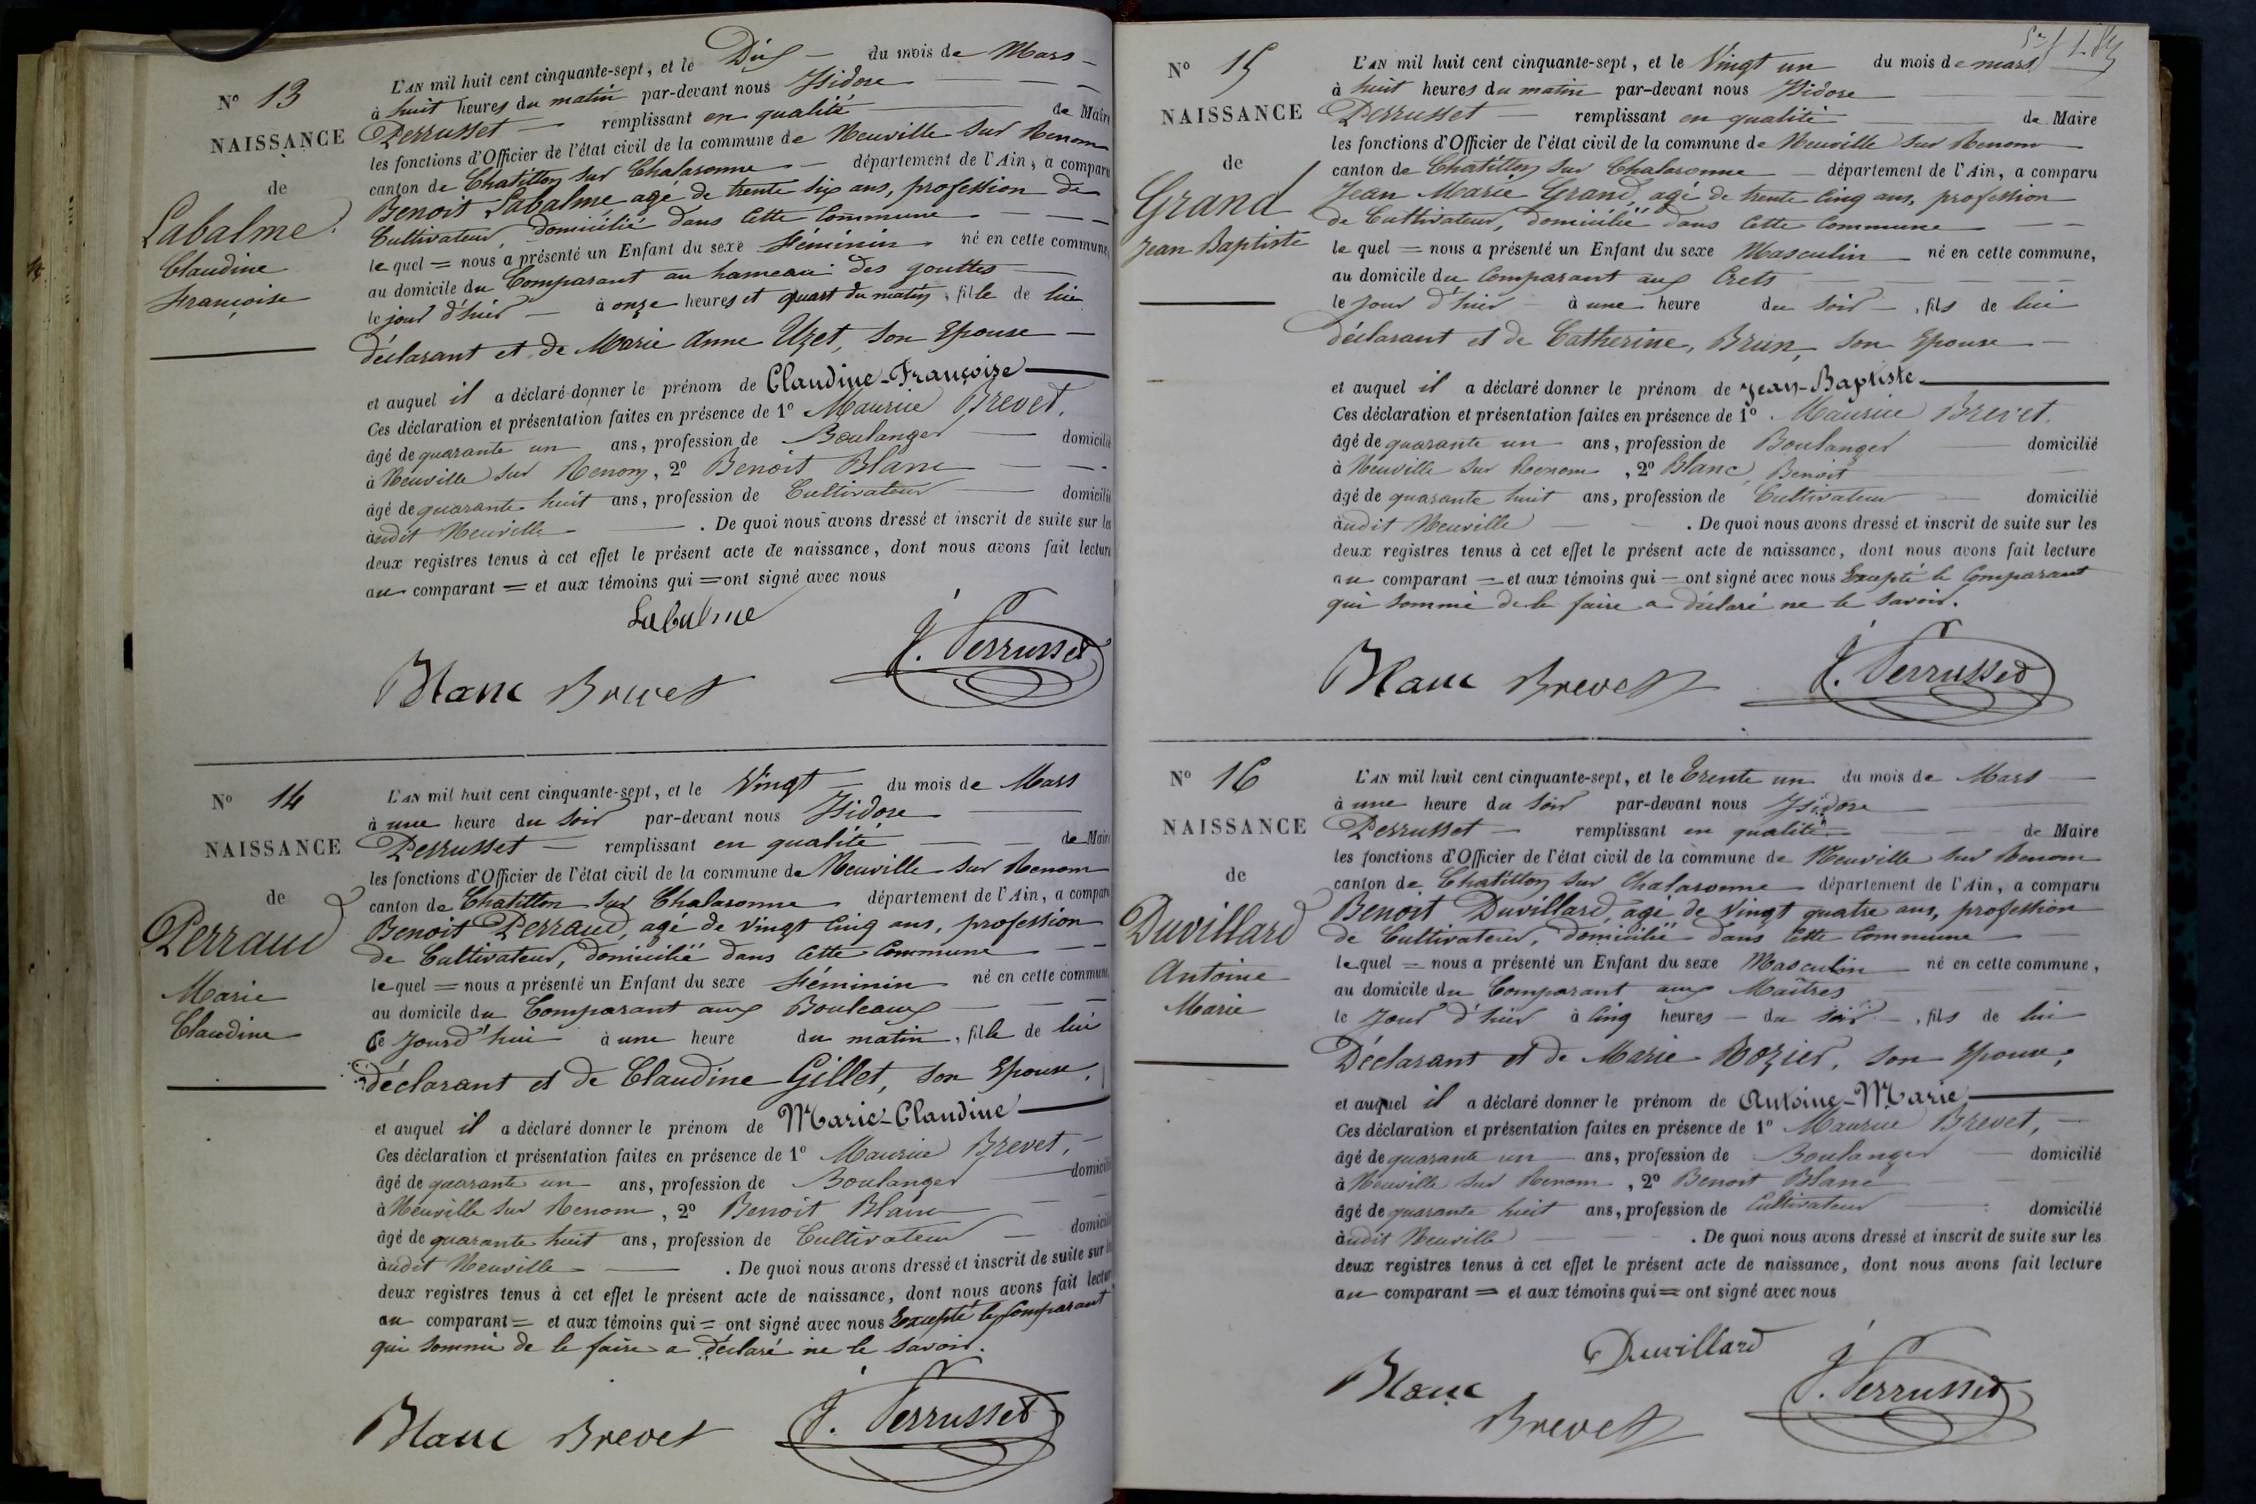 N° 13
NAISSANCE
de
Labalme
Claudine
Françoise
L'AN mil huit cent cinquante-sept, et le Dix du mois de Mars
à huit heures du matin par-devant nous Isidore
Perrusset remplissant en qualité de Maire
les fonctions d'Officier de l'état civil de la commune de Neuville sur Renom
canton de Chatillon sur Chalaronne département de l'Ain, a comparu
Benoit Labalme agé de trente six ans, profession de
Cultivateur, domicilié dans cette Commune
lequel = nous a présenté un Enfant du sexe féminin né en cette commune,
au domicile du Comparant au hameau des gouttes
le jour d'hier à onze heures et quart du matin, fille de lui
déclarant et de Marie Anne Uzet, son Epouse
et auquel il a déclaré donner le prénom de Claudine-Françoise
Ces déclaration et présentation faites en présence de 1° Maurice Brevet,
âgé de quarante un ans, profession de Boulanger domicilié
à Neuville sur Renom, 2° Benoit Blanc
âgé de quarante huit ans, profession de Cultivateur domicilié
audit Neuville . De quoi nous avons dressé et inscrit de suite sur les
deux registres tenus à cet effet le présent acte de naissance, dont nous avons fait lecture
au comparant = et aux témoins qui = ont signé avec nous
Labalme
J. Perrusset
Blanc Brevet
N° 14
NAISSANCE
de
Perraud
Marie
Claudine
L'AN mil huit cent cinquante-sept, et le Vingt du mois de Mars
à une heure du soir par-devant nous Isidore
Perrusset remplissant en qualité de Maire
les fonctions d'Officier de l'état civil de la commune de Neuville sur Renom
canton de Chatillon sur Chalaronne département de l'Ain, a comparu
Benoit Perraud, agé de vingt cinq ans, profession
de Cultivateur, domicilié dans cette Commune
lequel = nous a présenté un Enfant du sexe féminin né en cette commune,
au domicile du Comparant aux Bouleaux
Ce Jourd'hui à une heure du matin, fille de lui
déclarant et de Claudine Gillet, son Epouse,
et auquel il a déclaré donner le prénom de Marie-Claudine
Ces déclaration et présentation faites en présence de 1° Maurice Brevet,
âgé de quarante un ans, profession de Boulanger domicilié
à Neuville sur Renom, 2° Benoit Blanc
âgé de quarante huit ans, profession de Cultivateur domicilié
audit Neuville . De quoi nous avons dressé et inscrit de suite sur les
deux registres tenus à cet effet le présent acte de naissance, dont nous avons fait lecture
au comparant = et aux témoins qui = ont signé avec nous Excepté le Comparant
qui sommé de le faire a déclaré ne le savoir.
J. Perrusset
Blanc Brevet
N° 15
NAISSANCE
de
Grand
Jean Baptiste
L'AN mil huit cent cinquante-sept, et le Vingt un du mois de mars
à huit heures du matin par-devant nous Isidore
Perrusset remplissant en qualité de Maire
les fonctions d'Officier de l'état civil de la commune de Neuville sur Renom
canton de Chatillon sur Chalaronne département de l'Ain, a comparu
Jean Marie Grand, agé de trente cinq ans, profession
de Cultivateur, domicilié dans cette Commune
lequel = nous a présenté un Enfant du sexe Masculin né en cette commune,
au domicile du Comparant aux Crets
le jour d'hier à une heure du soir, fils de lui
déclarant et de Catherine, Brun, son Epouse
et auquel il a déclaré donner le prénom de Jean-Baptiste
Ces déclaration et présentation faites en présence de 1° Maurice Brevet,
âgé de quarante un ans, profession de Boulanger domicilié
à Neuville sur Renom, 2° Blanc, Benoit
âgé de quarante huit ans, profession de Cultivateur domicilié
audit Neuville . De quoi nous avons dressé et inscrit de suite sur les
deux registres tenus à cet effet le présent acte de naissance, dont nous avons fait lecture
au comparant = et aux témoins qui = ont signé avec nous Excepté le Comparant
qui sommé de le faire a déclaré ne le savoir.
J. Perrusset
Blanc Brevet
N° 16
NAISSANCE
de
Duvillard
Antoine
Marie
L'AN mil huit cent cinquante-sept, et le Trente un du mois de Mars
à une heure du soir par-devant nous Isidore
Perrusset remplissant en qualité de Maire
les fonctions d'Officier de l'état civil de la commune de Neuville sur Renom
canton de Chatillon sur Chalaronne département de l'Ain, a comparu
Benoit Duvillard, agé de vingt quatre ans, profession
de Cultivateur, domicilié dans cette Commune
lequel = nous a présenté un Enfant du sexe Masculin né en cette commune,
au domicile du Comparant aux Maîtres
le Jour d'hier à cinq heures du soir, fils de lui
Déclarant et de Marie Rozier, son Epouse;
et auquel il a déclaré donner le prénom de Antoine-Marie,
Ces déclaration et présentation faites en présence de 1° Maurice Brevet,
âgé de quarante un ans, profession de Boulanger domicilié
à Neuville sur Renom, 2° Benoit Blanc
âgé de quarante huit ans, profession de Cultivateur domicilié
audit Neuville . De quoi nous avons dressé et inscrit de suite sur les
deux registres tenus à cet effet le présent acte de naissance, dont nous avons fait lecture
au comparant = et aux témoins qui = ont signé avec nous
Duvillard
J. Perrusset
Blanc
Brevet